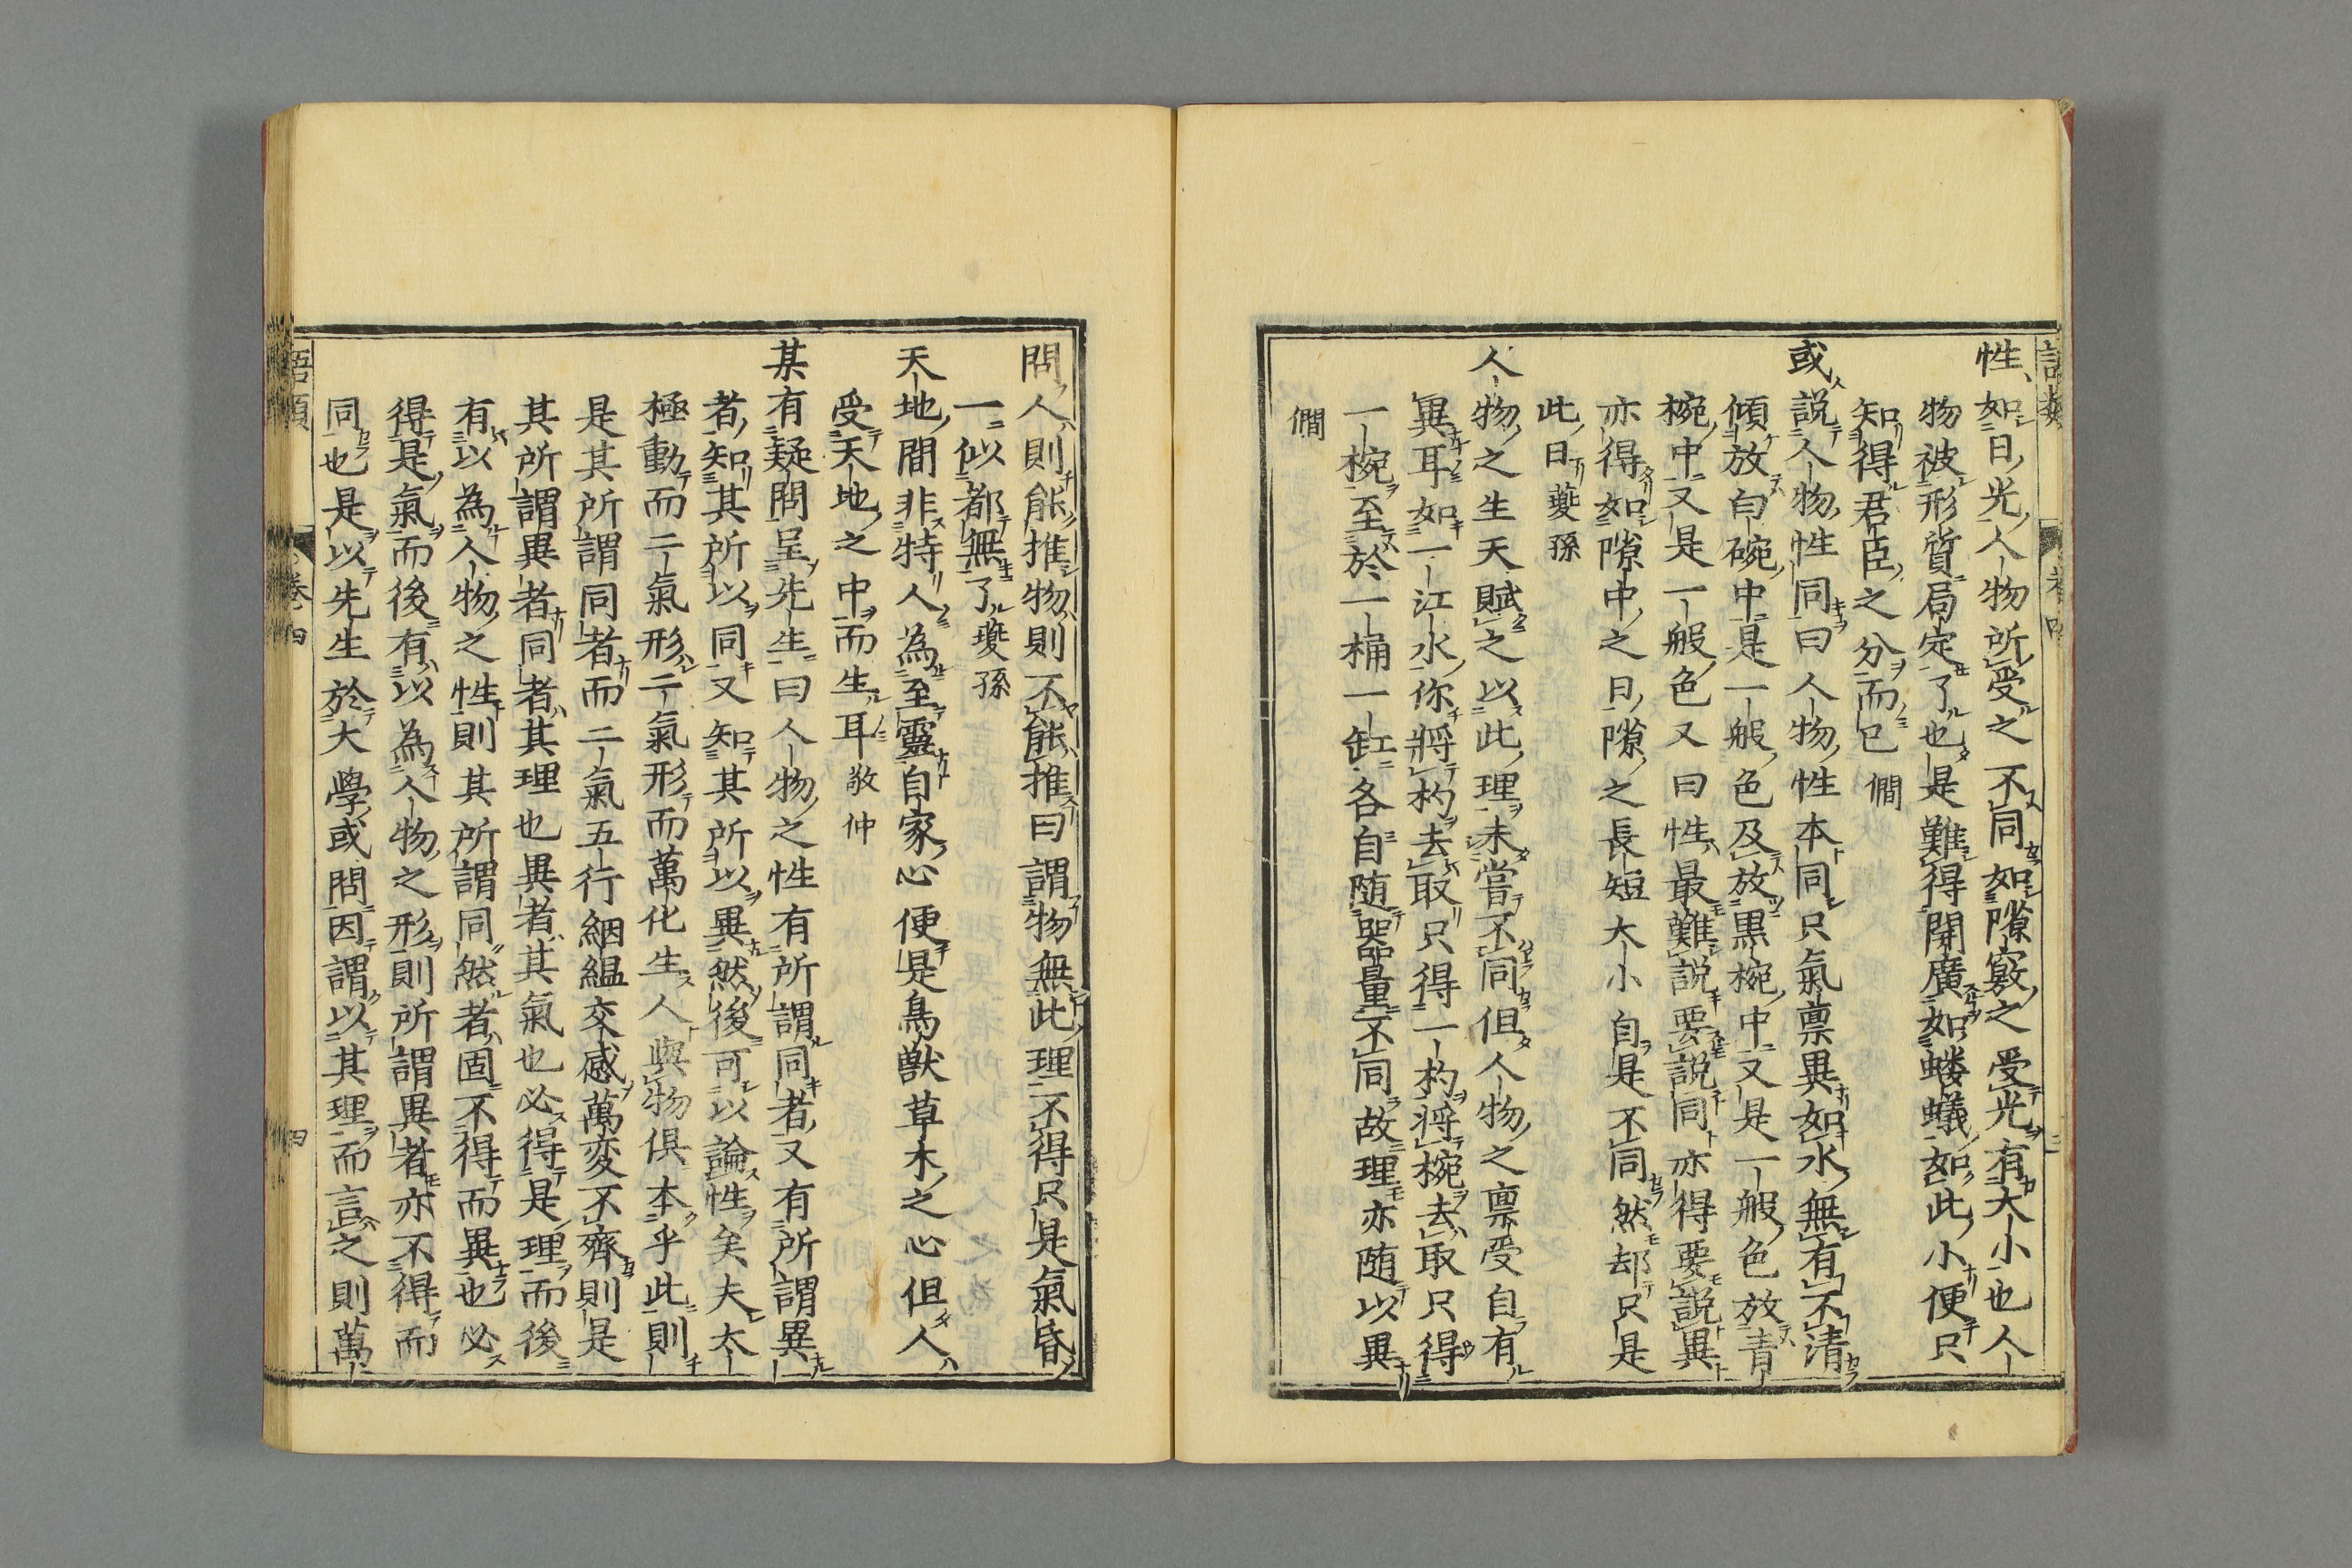 性如日光人物所受之不同如隙竅之受光有大小也人
物被形質局定了也是難得開廣如螻蟻如此小便只
知得君臣之分而已 僩
或說人物性同曰人物性本同只氣禀異如水無有不清
傾放白碗中是一般色及放黒椀中又是一般色放青
椀中又是一般色又曰性最難說要說同亦得要說異
亦得如隙中之日隙之長短大小自是不同然却只是
此日 夔孫
人物之生天賦之以此理未嘗不同但人物之禀受自有
異耳如一江水你將杓去取只得一杓將椀去取只得
一椀至於一桶一缸各自随器量不同故理亦随以異
僩
問人則能推物則不能推曰謂物無此理不得只是氣昏
一似都無了 夔孫
天地間非特人為至靈自家心便是鳥獣草木之心但人
受天地之中而生耳 敬仲
某有疑問呈先生曰人物之性有所謂同者又有所謂異
者知其所以同又知其所以異然後可以論性矣夫太
極動而二氣形二氣形而萬化生人與物俱本乎此則
是其所謂同者而二氣五行絪緼交感萬変不齊則是
其所謂異者同者其理也異者其氣也必得是理而後
有以為人物之性則其所謂同然者固不得而異也必
得是氣而後有以為人物之形則所謂異者亦不得而
同也是以先生於大學或問因謂以其理而言之則萬
語類 卷四 四